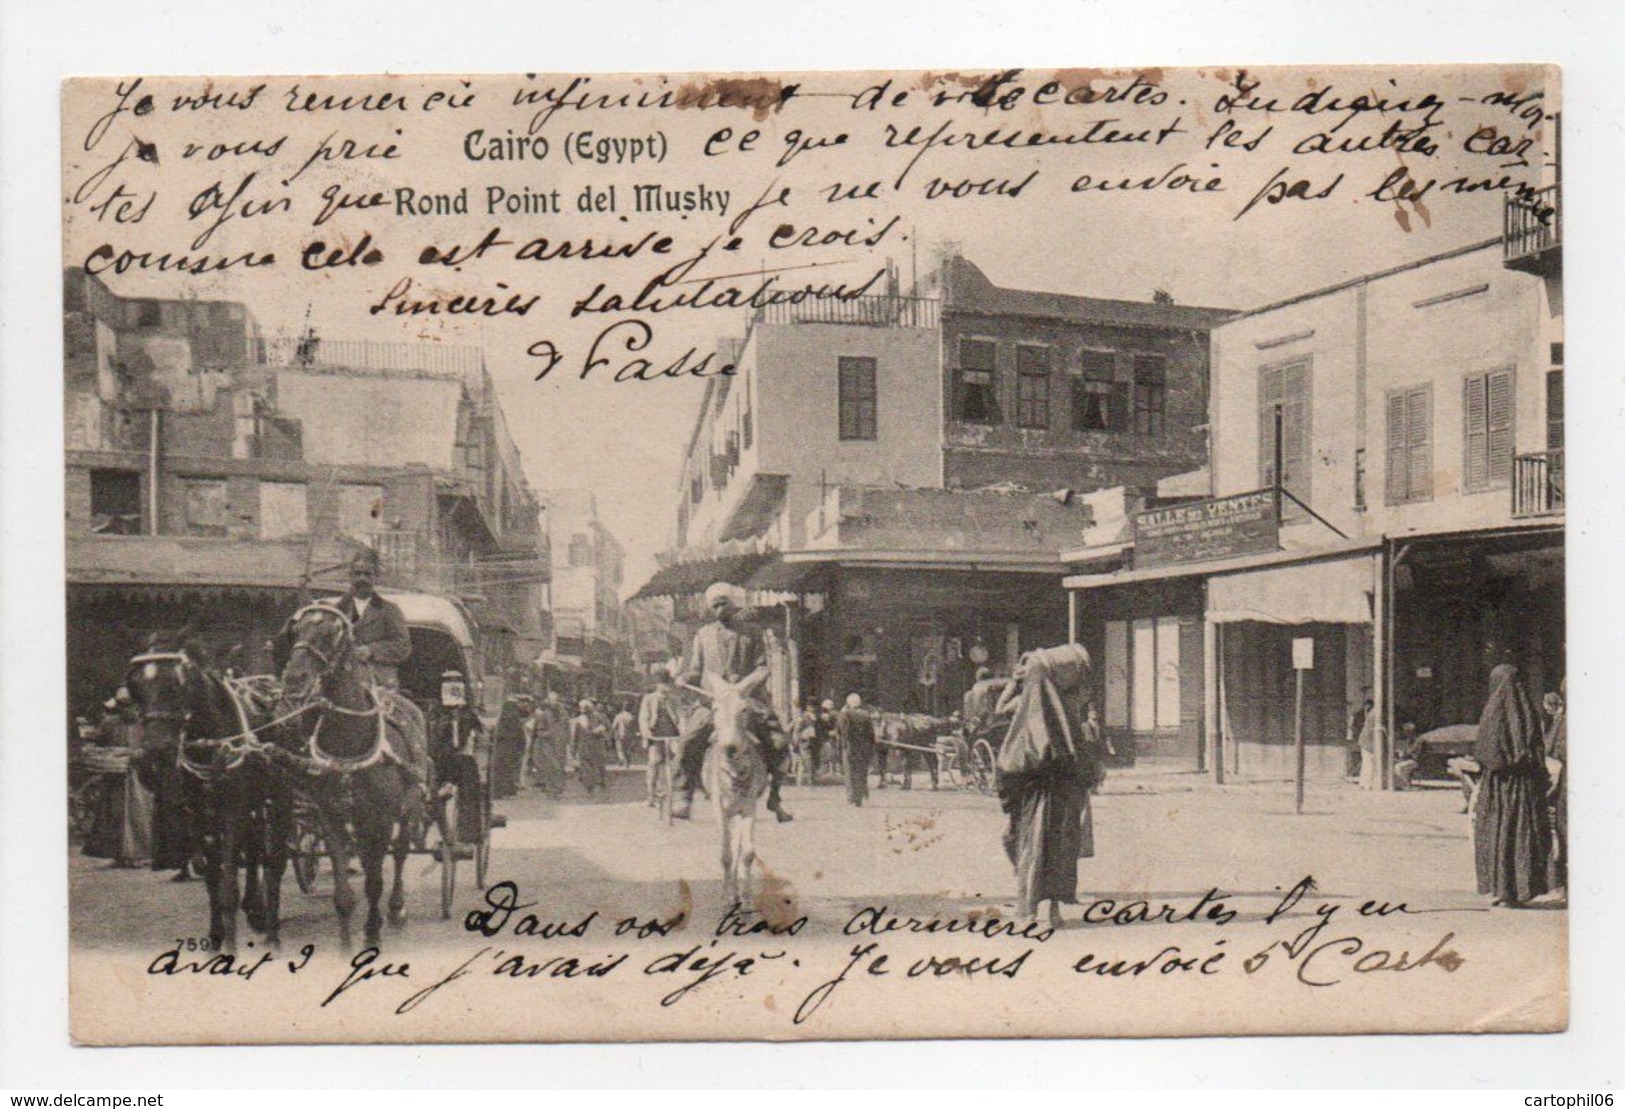 Je vous remercie infiniment de votre cartes. Indiquez-moi
je vous prie Cairo (Egypt) ce que representent les autres car-
tes afin que Rond Point del Musky je ne vous envoie pas les même
comme cela est arrivé je crois.
Sincères salutations
Passe
SALLE DES VENTES
Dans vos trois dernières cartes il y en
759
avait 2 que j'avais déjà. Je vous envoie 5 Cartes
www.delcampe.net
cartophil06